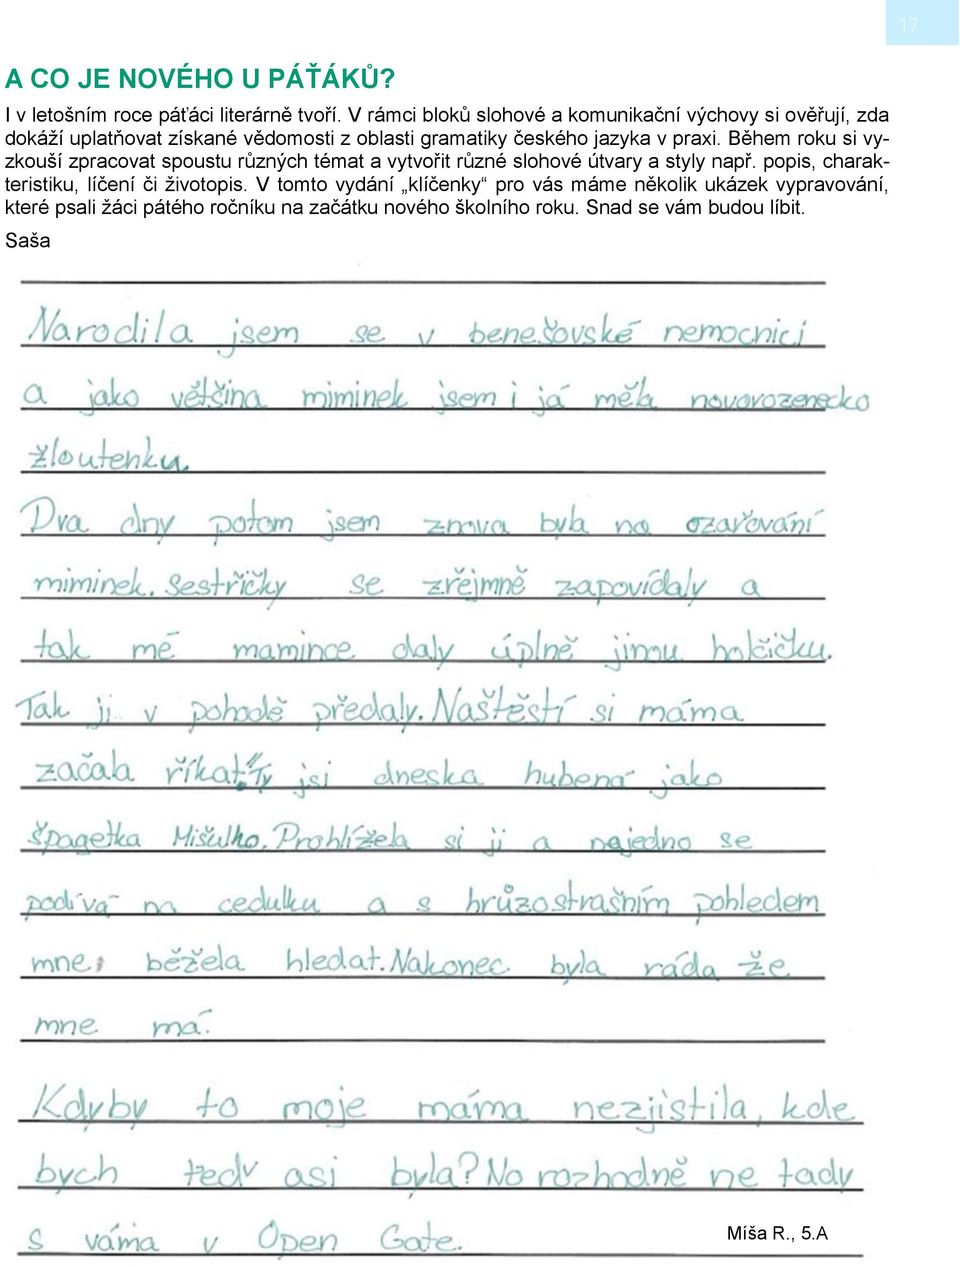 17
A CO JE NOVÉHO U PÁŤÁKŮ?
I v letošním roce páťáci literárně tvoří. V rámci bloků slohové a komunikační výchovy si ověřují, zda
dokáží uplatňovat získané vědomosti z oblasti gramatiky českého jazyka v praxi. Během roku si vy-
zkouší zpracovat spoustu různých témat a vytvořit různé slohové útvary a styly např. popis, charak-
teristiku, líčení či životopis. V tomto vydání „klíčenky“ pro vás máme několik ukázek vypravování,
které psali žáci pátého ročníku na začátku nového školního roku. Snad se vám budou líbit.
Saša
Narodila jsem se v benešovské nemocnici
a jako většina miminek jsem i já měla novorozenecko
žloutenku.
Dva dny potom jsem znova byla na ozařování
miminek. Sestřičky se zřejmně zapovídaly a
tak mé mamince daly úplně jinou holčičku.
Tak ji v pohodě předaly. Naštěstí si máma
začala říkat: "Ty jsi dneska hubená jako
špagetka Mišulko. Prohlížela si ji a najedno se
podívá na cedulku a s hrůzostrašním pohledem
mne, běžela hledat. Nakonec byla ráda že
mne má.
Kdyby to moje máma nezjistila, kde
bych tedy asi byla? No rozhodně ne tady
s váma v Open Gate.
Míša R., 5.A